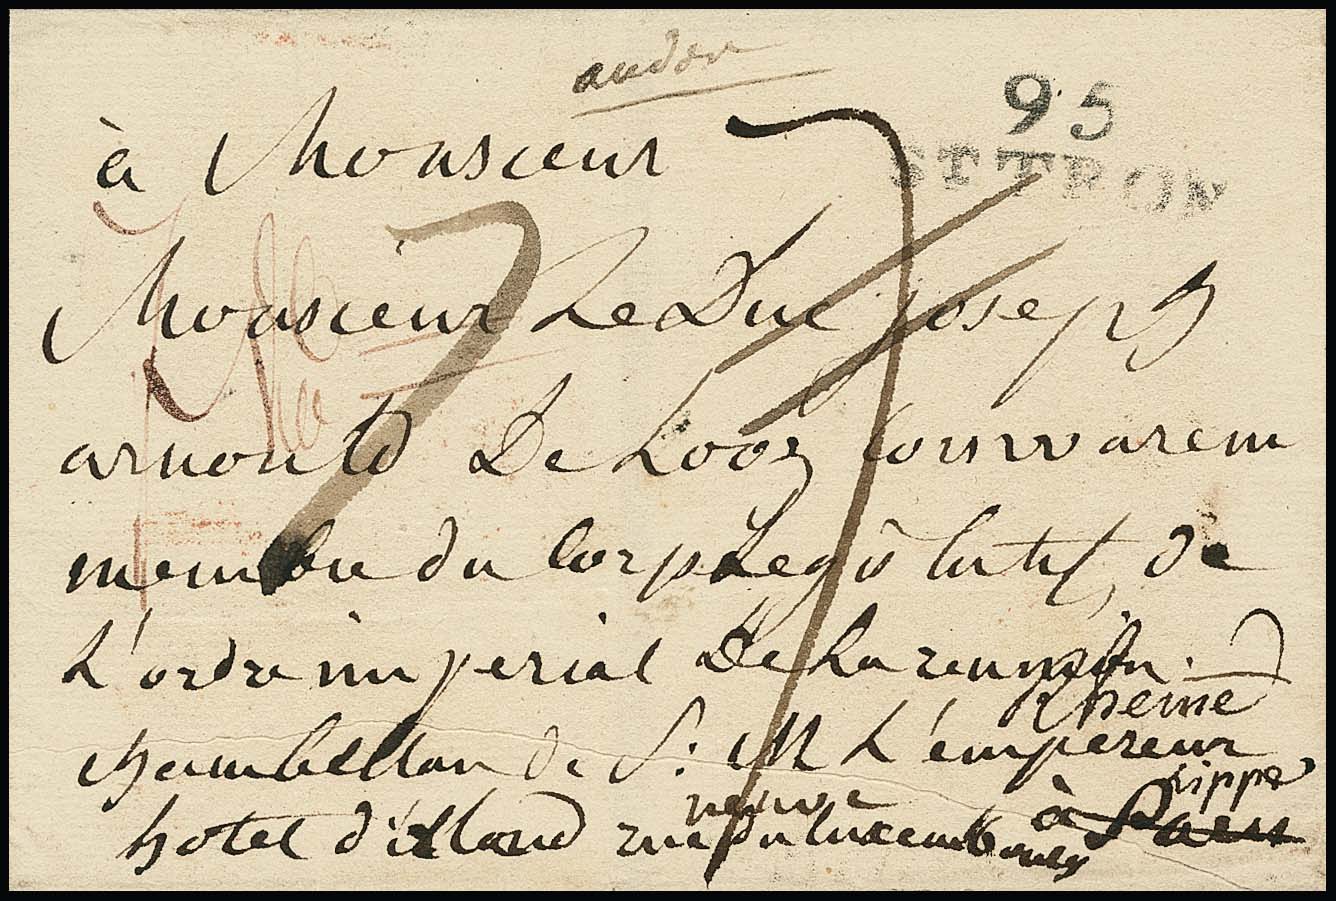 95
ST TRON
à Monsieur
Monsieur Le Duc joseph
arnould De Looz Corswarem
membre du Corps Legislatif, de
L'ordre imperial De La reunion.
chambellan de S: M L'empereur
Rheine
Lippe
hotel d'irland rue neuve Du luxembourg à Paris